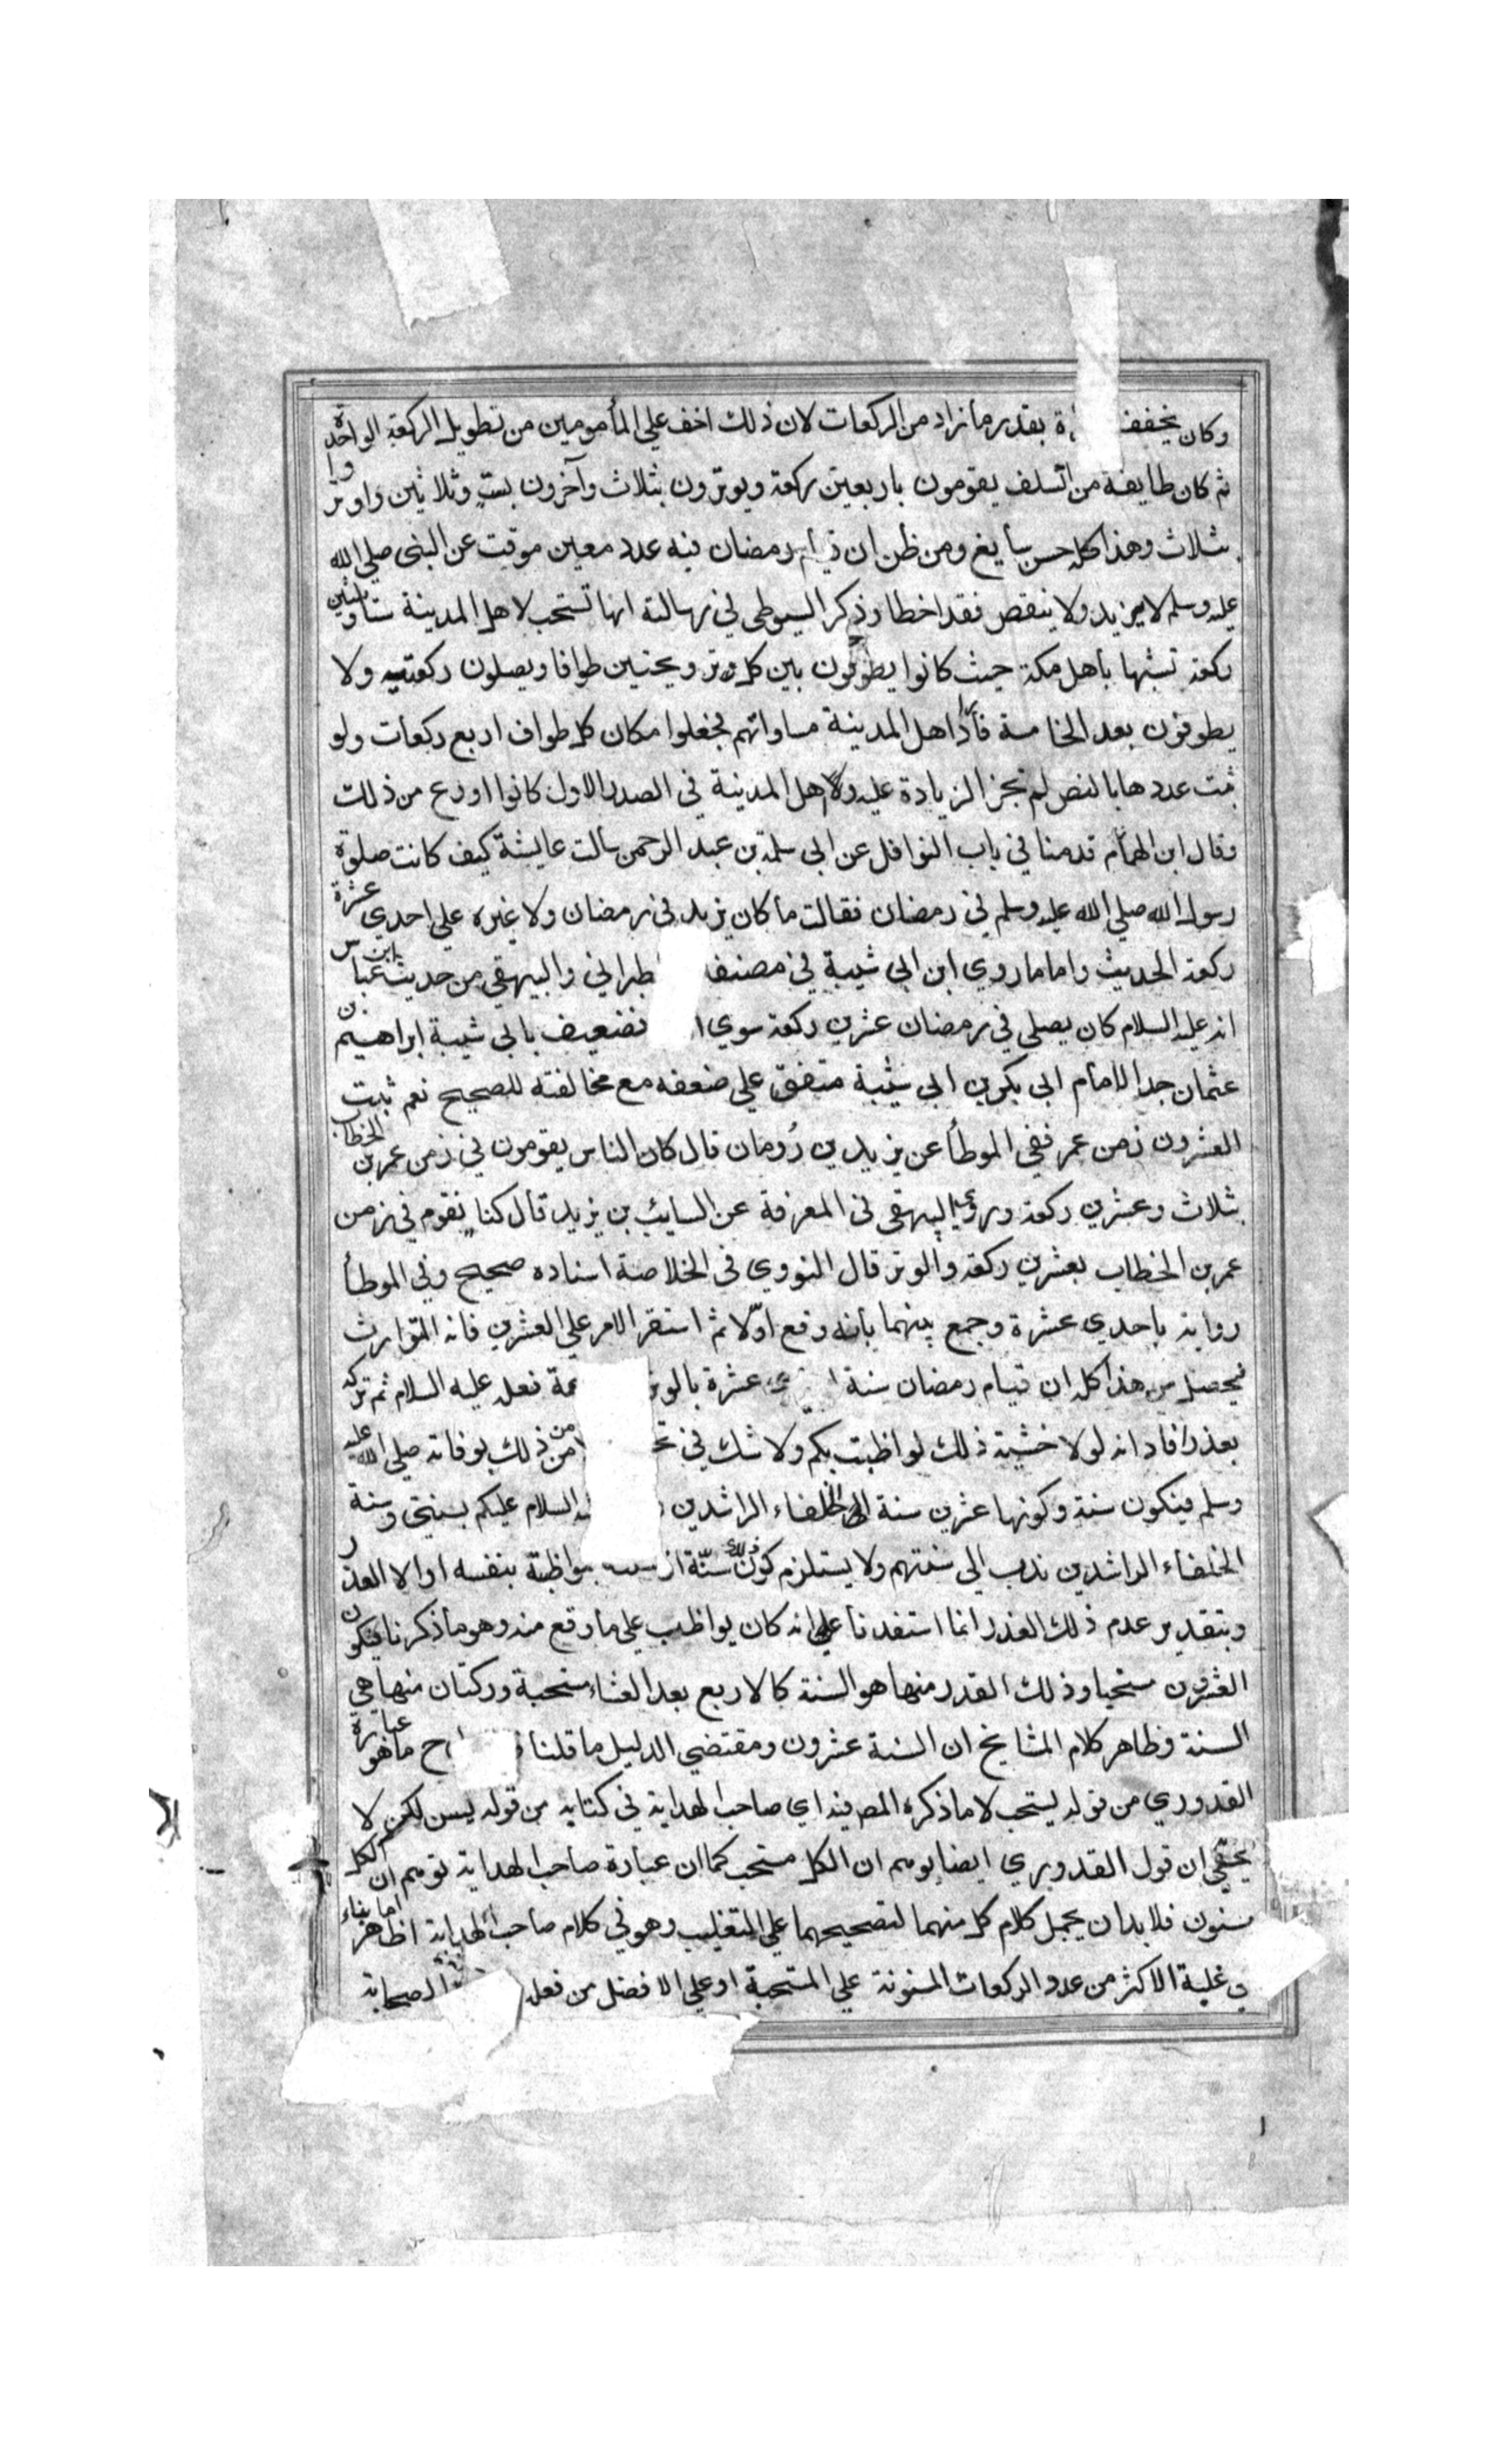 وكان يخفف بقدر ما زاد من الركعات لان ذلك اخف علي المأمومين من تطويل الركعة الواحدة
ثم كان طايفة من السلف يقومون باربعين ركعة ويوترون بثلاث وآخرون بستٍ وثلاثين واوتروا
بثلاث وهذا كله حسن سايغ ومن ظن ان قيام رمضان فيه عدد معين موقت عن النبي صلي الله
عليه وسلم لا يزيد ولا ينقص فقد اخطا وذكر السيوطي في رسالته انها تستحب لاهل المدينة ستا وثلثين
ركعة تشبها بأهل مكة حيث كانوا يطوفون بين كل ترويحتين طوافا ويصلون ركعتيه ولا
يطوفون بعد الخامسة فأراد اهل المدينة مساواتهم فجعلوا مكان كل طواف اربع ركعات ولو
ثبت عددها بالنص لم تجز الزيادة عليه ولاهل المدينة في الصدر الاول كانوا اورع من ذلك
وقال ابن الهمام قدمنا في باب النوافل عن ابي سلمة بن عبد الرحمن سالت عايشة كيف كانت صلوة
رسول الله صلي الله عليه وسلم في رمضان فقالت ما كان يزيد في رمضان ولا غيره علي احدي عشرة
ركعة الحديث واما ما روي ابن ابي شيبة في مصنفه طبراني والبيهقي من حديث ابن عباس
انه عليه السلام كان يصلي في رمضان عشرين ركعة سوي فضعيف بابي شيبة ابراهيم بن
عثمان جد الامام ابي بكر بن ابي شيبة متفق علي ضعفه مع مخالفته للصحيح نعم ثبت
العشرون زمن عمر ففي الموطأ عن يزيد بن رُومان قال كان الناس يقومون في زمن عمر بن الخطاب
بثلاث وعشرين ركعة وروي البيهقي في المعرفة عن السايب بن يزيد قال كنا نقوم في زمن
عمر بن الخطاب بعشرين ركعة والوتر قال النووي في الخلاصة اسناده صحيح وفي الموطأ
رواية باحدي عشرة وجمع بينهما بأنه وقع اوّلا ثم استقر الامر علي العشرين فانه المتوارث
فيحصل من هذا كله ان قيام رمضان سنة عشرة بالوتر فعله عليه السلام ثم تركه
بعذر افاد انه لولا خشية ذلك لواظبت بكم ولا شك في من ذلك بوفاته صلي الله عليه
وسلم فيكون سنة وكونها عشرين سنة الخلفاء الراشدين السلام عليكم بسنتي وسنة
الخلفاء الراشدين ندب الي سنتهم ولا يستلزم كون ذلك سنّة اذ بمواظبة بنفسه او الا لعذر
وبتقدير عدم ذلك العذر انما استفدنا علي انه كان يواظب علي ما وقع منه وهو ما ذكرنا فيكون
العشرين مستحبا وذلك القدر منها هو السنة كالاربع بعد العشاء مستحبة وركتان منها هي
السنة وظاهر كلام المشايخ ان السنة عشرون ومقتضي الدليل ما قلنا ما هو عبارة
القدوري من قوله يستحب لا ما ذكره المص فيه اي صاحب الهداية في كتابه من قوله يسن لكن لا
يخفي ان قول القدوري ايضا يوهم ان الكل مستحب كما ان عبارة صاحب الهداية توهم ان الكل
مسنون فلا بد ان يحمل كلام كل منهما لتصحيحهما علي التغليب وهو في كلام صاحب الهداية اظاهر اما بناء
في غلبة الاكثر من عدد الركعات المسنونة علي المستحبة او علي الافضل من فعل الصحابة